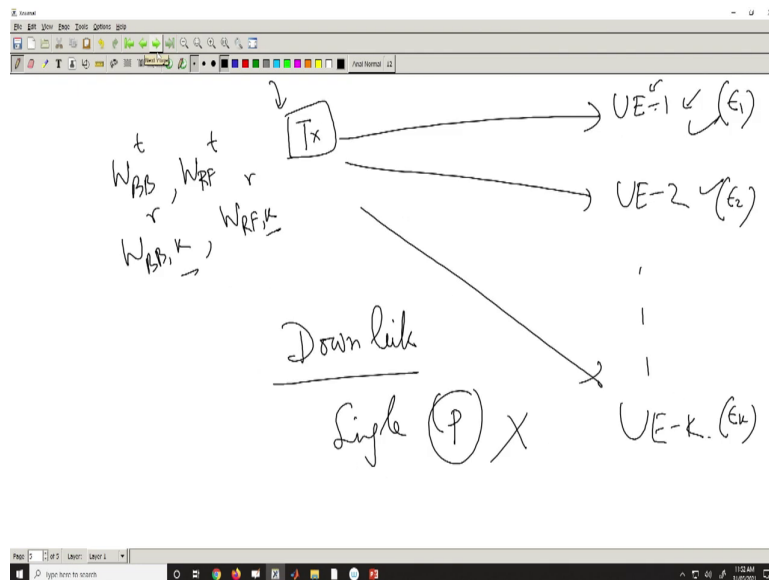 Xournal
File Edit View Page Tools Options Help
Arial Normal 12
Tx
UE-1 (E1)
t t
WBB, WRF
r r
WBB,K, WRF,K
UE-2 (E2)
Down link
Single P X
UE-K. (EK)
Page 5 of 5 Layer: Layer 1
Type here to search
11:52 AM